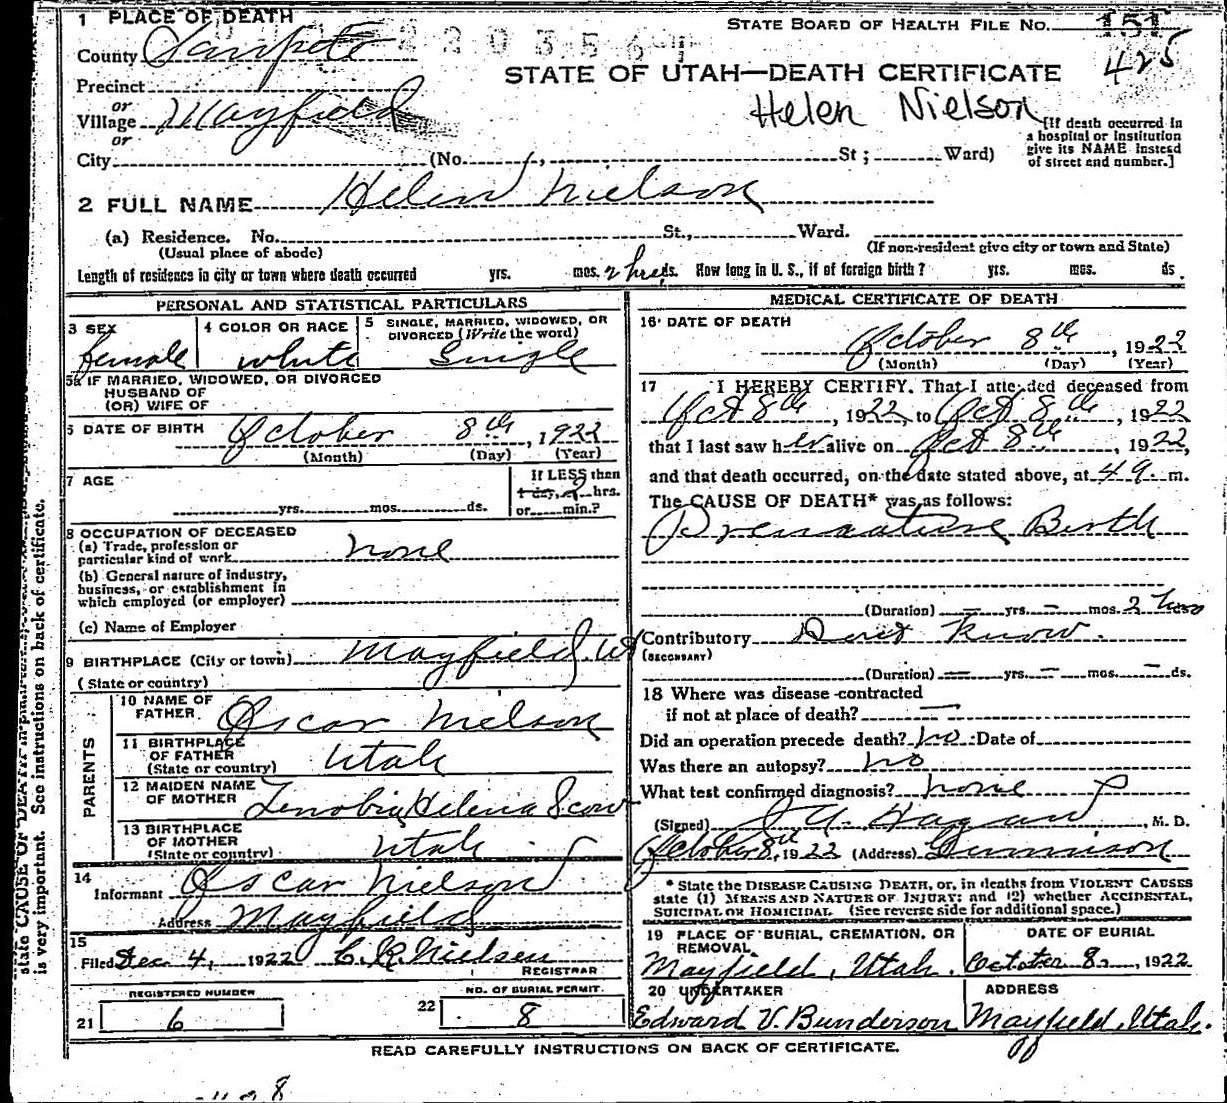 1 PLACE OF DEATH
STATE BOARD OF HEALTH FILE No. 151
County Sanpete
425
STATE OF UTAH—DEATH CERTIFICATE
Precinct
Helen Nielson
or
Village Mayfield
or
[If death occurred in
a hospital or institution
give its NAME instead
of street and number.]
City (No. St; Ward)
2 FULL NAME Helen Nielson
(a) Residence. No. St., Ward.
(Usual place of abode) (If non-resident give city or town and State)
Length of residence in city or town where death occurred yrs. mos. 2 hrs ds. How long in U. S., if of foreign birth? yrs. mos. ds.
PERSONAL AND STATISTICAL PARTICULARS
3 SEX
female
4 COLOR OR RACE
white
5 SINGLE, MARRIED, WIDOWED, OR
DIVORCED (Write the word)
Single
5a IF MARRIED, WIDOWED, OR DIVORCED
HUSBAND OF
(OR) WIFE OF
6 DATE OF BIRTH October 8th, 1922
(Month) (Day) (Year)
7 AGE
yrs. mos. ds.
If LESS than
1 day, 2 hrs.
or min.?
8 OCCUPATION OF DECEASED
(a) Trade, profession or
particular kind of work none
(b) General nature of industry,
business, or establishment in
which employed (or employer)
(c) Name of Employer
9 BIRTHPLACE (City or town) Mayfield, Ut
(State or country)
PARENTS
10 NAME OF
FATHER Oscar Nielson
11 BIRTHPLACE
OF FATHER
(State or country) Utah
12 MAIDEN NAME
OF MOTHER Zenobia Helena Scow
13 BIRTHPLACE
OF MOTHER
(State or country) Utah
14
Informant Oscar Nielson
Address Mayfield
15
Filed Dec 4, 1922 C. R. Nielsen
REGISTRAR
REGISTERED NUMBER
21 6
NO. OF BURIAL PERMIT.
22 8
MEDICAL CERTIFICATE OF DEATH
16 DATE OF DEATH
October 8th, 1922
(Month) (Day) (Year)
17 I HEREBY CERTIFY, That I attended deceased from
Oct 8th, 1922, to Oct 8th, 1922
that I last saw her alive on Oct 8th, 1922,
and that death occurred, on the date stated above, at 4 9. m.
The CAUSE OF DEATH* was as follows:
Premature Birth
(Duration) — yrs. — mos. 2 hrs
Contributory Dont Know.
(SECONDARY)
(Duration) — yrs. — mos. — ds.
18 Where was disease contracted
if not at place of death? —
Did an operation precede death? no Date of
Was there an autopsy? no
What test confirmed diagnosis? none
(Signed) J A Hagan, M. D.
October 8th, 1922 (Address) Gunnison
* State the DISEASE CAUSING DEATH, or, in deaths from VIOLENT CAUSES
state (1) MEANS AND NATURE OF INJURY; and (2) whether ACCIDENTAL,
SUICIDAL OR HOMICIDAL. (See reverse side for additional space.)
19 PLACE OF BURIAL, CREMATION, OR
REMOVAL
Mayfield, Utah.
DATE OF BURIAL
October 8, 1922
20 UNDERTAKER
Edward V. Bunderson
ADDRESS
Mayfield, Utah.
READ CAREFULLY INSTRUCTIONS ON BACK OF CERTIFICATE.
state CAUSE OF DEATH in
is very important. See instructions on back of certificate.